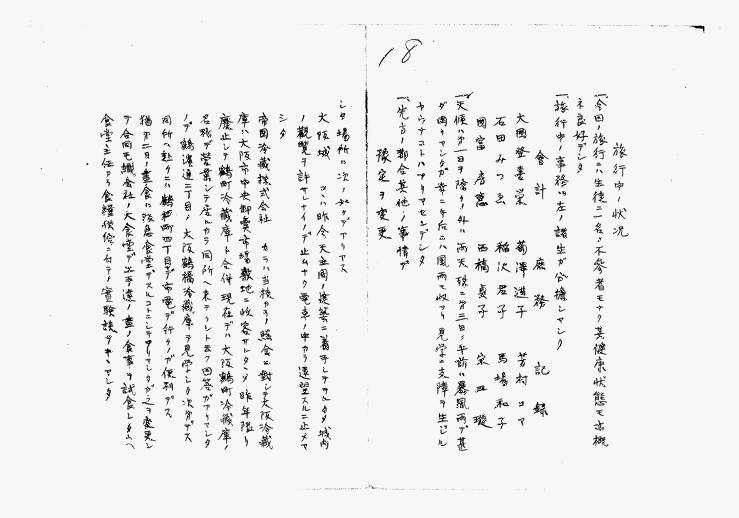 18
旅行中ノ状況
一、今回ノ旅行ニハ生徒ニ一名ノ不参者モナク其健康状態モ亦概
ネ良好デシタ
一、旅行中ノ事務ハ左ノ諸生ガ分擔シマシタ
会計 庶務 記録
大國登美榮 道子 芳村コマ
石田みつゑ 稲沢君子 馬場和子
岡富 喜 西橋貞子 宗 璇
一、天候ハ第一日ヲ除クノ外ハ雨天殊ニ第三日ノ午前ハ暴風雨デ甚
ダ困リマシタガ幸ニ午后ニハ風雨モ收マリ見学ニ支障ヲ生ジル
ヤウナコトハアリマセンデシタ
一、先方ノ都合其他ノ事情デ 豫定ヲ変更
シタ場所ハ次ノ如クデアリマス
大阪城 コハ昨今天主閣ノ建築ニ着手シテヰルタメ城内
ノ観覧ヲ許サレナイノデ止ムナク電車ノ中カラ遠望スルニ止メマ
シタ
帝国冷蔵株式会社 カラハ当校カラノ照会ニ對シテ大阪冷蔵
庫ハ大阪市中央卸賣市場敷地ニ收容サルタメ昨年限リ
廃止シテ鶴町冷蔵庫ト合併現在デハ大阪鶴町冷蔵庫ノ
名称デ営業シテ居ルカラ同所ヘ来テクレト云フ回答ガアリマシタ
ノデ鶴濱通二丁目ノ大阪鶴橋冷蔵庫ヲ見学シタ次第デス
同所ヘ赴クニハ鶴町四丁目 市電デ行クノガ便利デス
猶カニ日ノ晝食ハ阪急食堂デスルコトニシテアリマシタガ之ヲ変更シ
テ合同毛織会社ノ大食堂デ女工達ノ晝ノ食事ヲ試食シタ
食堂主任カラ食糧 ニ付テノ実験談ヲキキマシタ